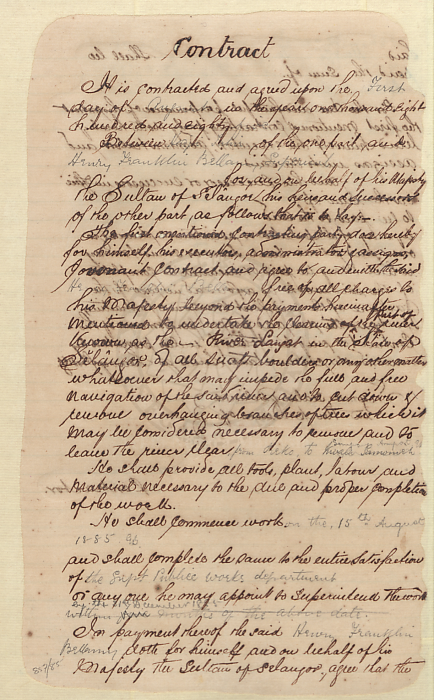 Contract
It is contracted and agreed upon the First
day of in the year one thousand eight
hundred and eighty
Between of the one part, and
Henry Franklin Bellamy
for, and on behalf of his Majesty
the Sultan of Selangor, his heirs and successors
of the other part, as follows that is to say.
The first mentioned Contracting party does hereby
for himself, his executors, administrators & assigns,
Covenant Contract, and agree to and with the said
free of all charges to
his Majesty beyond the payments hereinafter
mentioned to undertake the clearing of the part of river
known as the River Langat in the State of
Selangor, of all snags, boulders or any other matter
whatsoever that may impede the full and free
navigation of the said river, and to cut down &
remove overhanging branches of trees which it
may be considered necessary to remove and to
leave the river clear from to
He shall provide all tools, plant, labour and
material necessary to the due and proper completion
of the work.
He shall commence work on the, 15th August
1885
and shall complete the same to the entire satisfaction
of the Supt Public works department
or any one he may appoint to Superintend the work
by the 15th December 1885
of the above date.
In payment thereof the said Henry Franklin
Bellamy doth for himself and on behalf of his
Majesty the Sultan of Selangor, agree that the